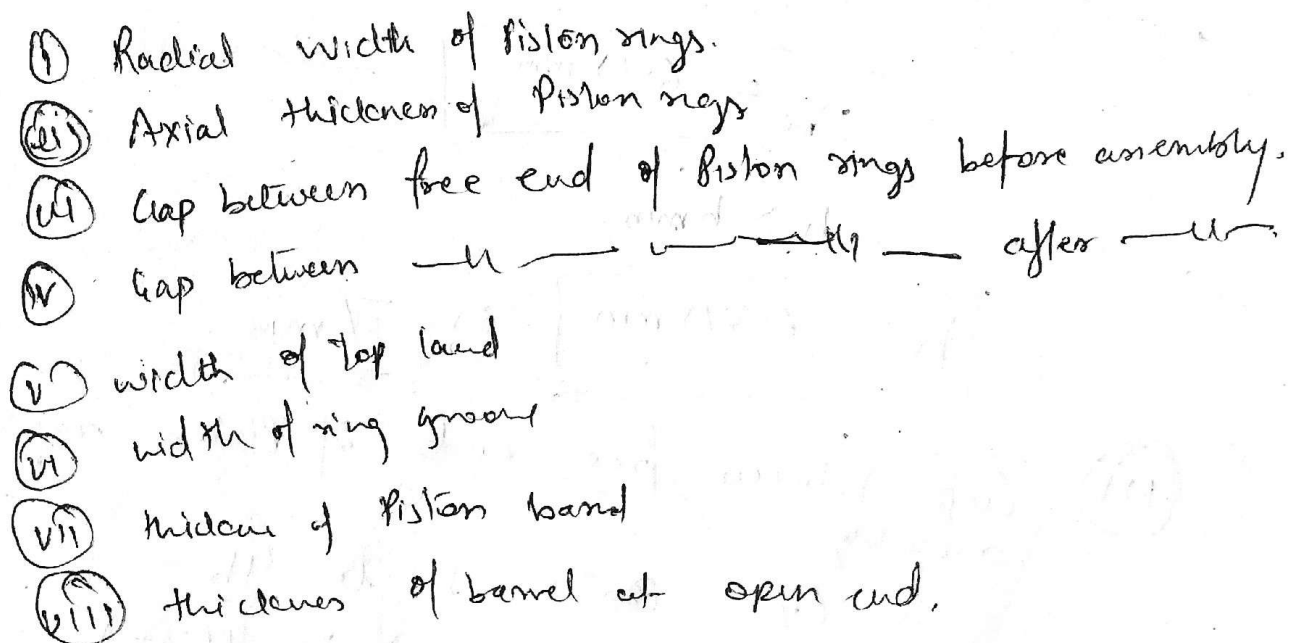 (i) Radial width of Piston rings.
(ii) Axial thickness of Piston rings
(iii) Gap between free end of Piston rings before assembly.
(iv) Gap between —〃— 〃 —〃— after —〃—.
(v) width of top land
(vi) width of ring groove
(vii) thickness of Piston barrel
(viii) thickness of barrel at open end.